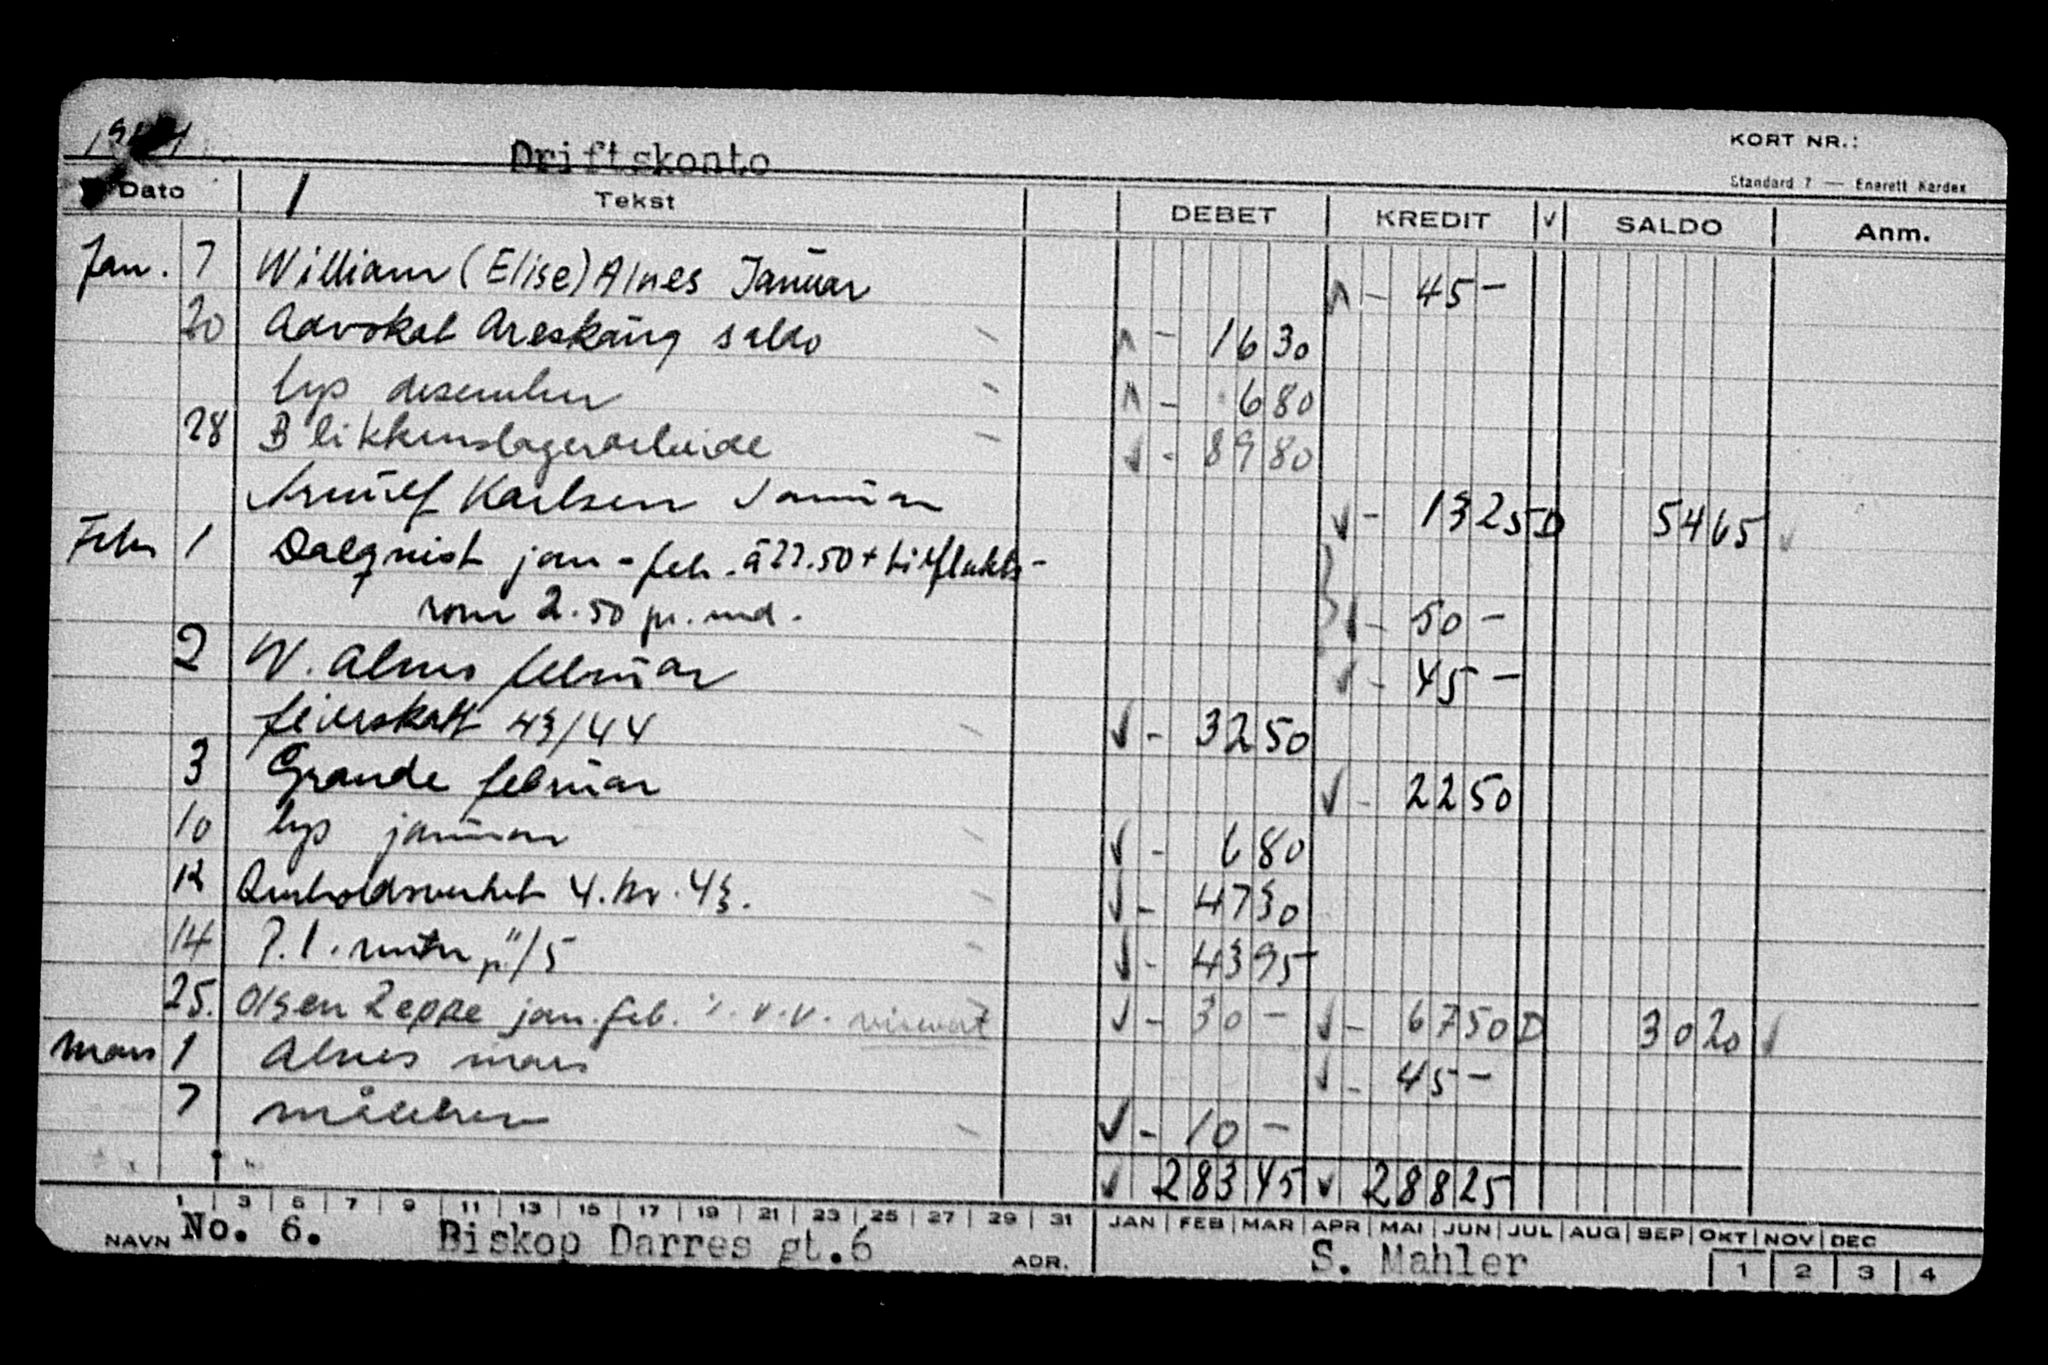 1944
Driftskonto
KORT NR.:
Standard 7 — Enerett Kardex
Dato 1 Tekst DEBET KREDIT √ SALDO Anm.
Jan. 7 William (Elise) Alnes Januar 45 -
20 Advokat Areskaug saldo 1630
lys desember 680
28 Blikkenslagerarbeide 8980
Arnulf Karlsen Januar 1325 D 5465
Febr 1 Dalqvist jan - feb. à 22.50 + tilflukts-
rom 2.50 pr. md. 50 -
2 W. Alnes februar 45 -
feierskatt 43/44 3250
3 Grande februar 2250
10 lys januar 680
12 Renholdsverket 4. kv. 43. 4730
14 P.l. renter pr. "/5 4395
25. Olsen Zeppe jan. feb. 30 - 6750 D 3020
Mars 1 Alnes mars 45 -
7 10 -
28345 28825
1 3 5 7 9 11 13 15 17 19 21 23 25 27 29 31 JAN FEB MAR APR MAI JUN JUL AUG SEP OKT NOV DEC
NAVN No. 6. Biskop Darres gt.6 ADR. S. Mahler 1 2 3 4